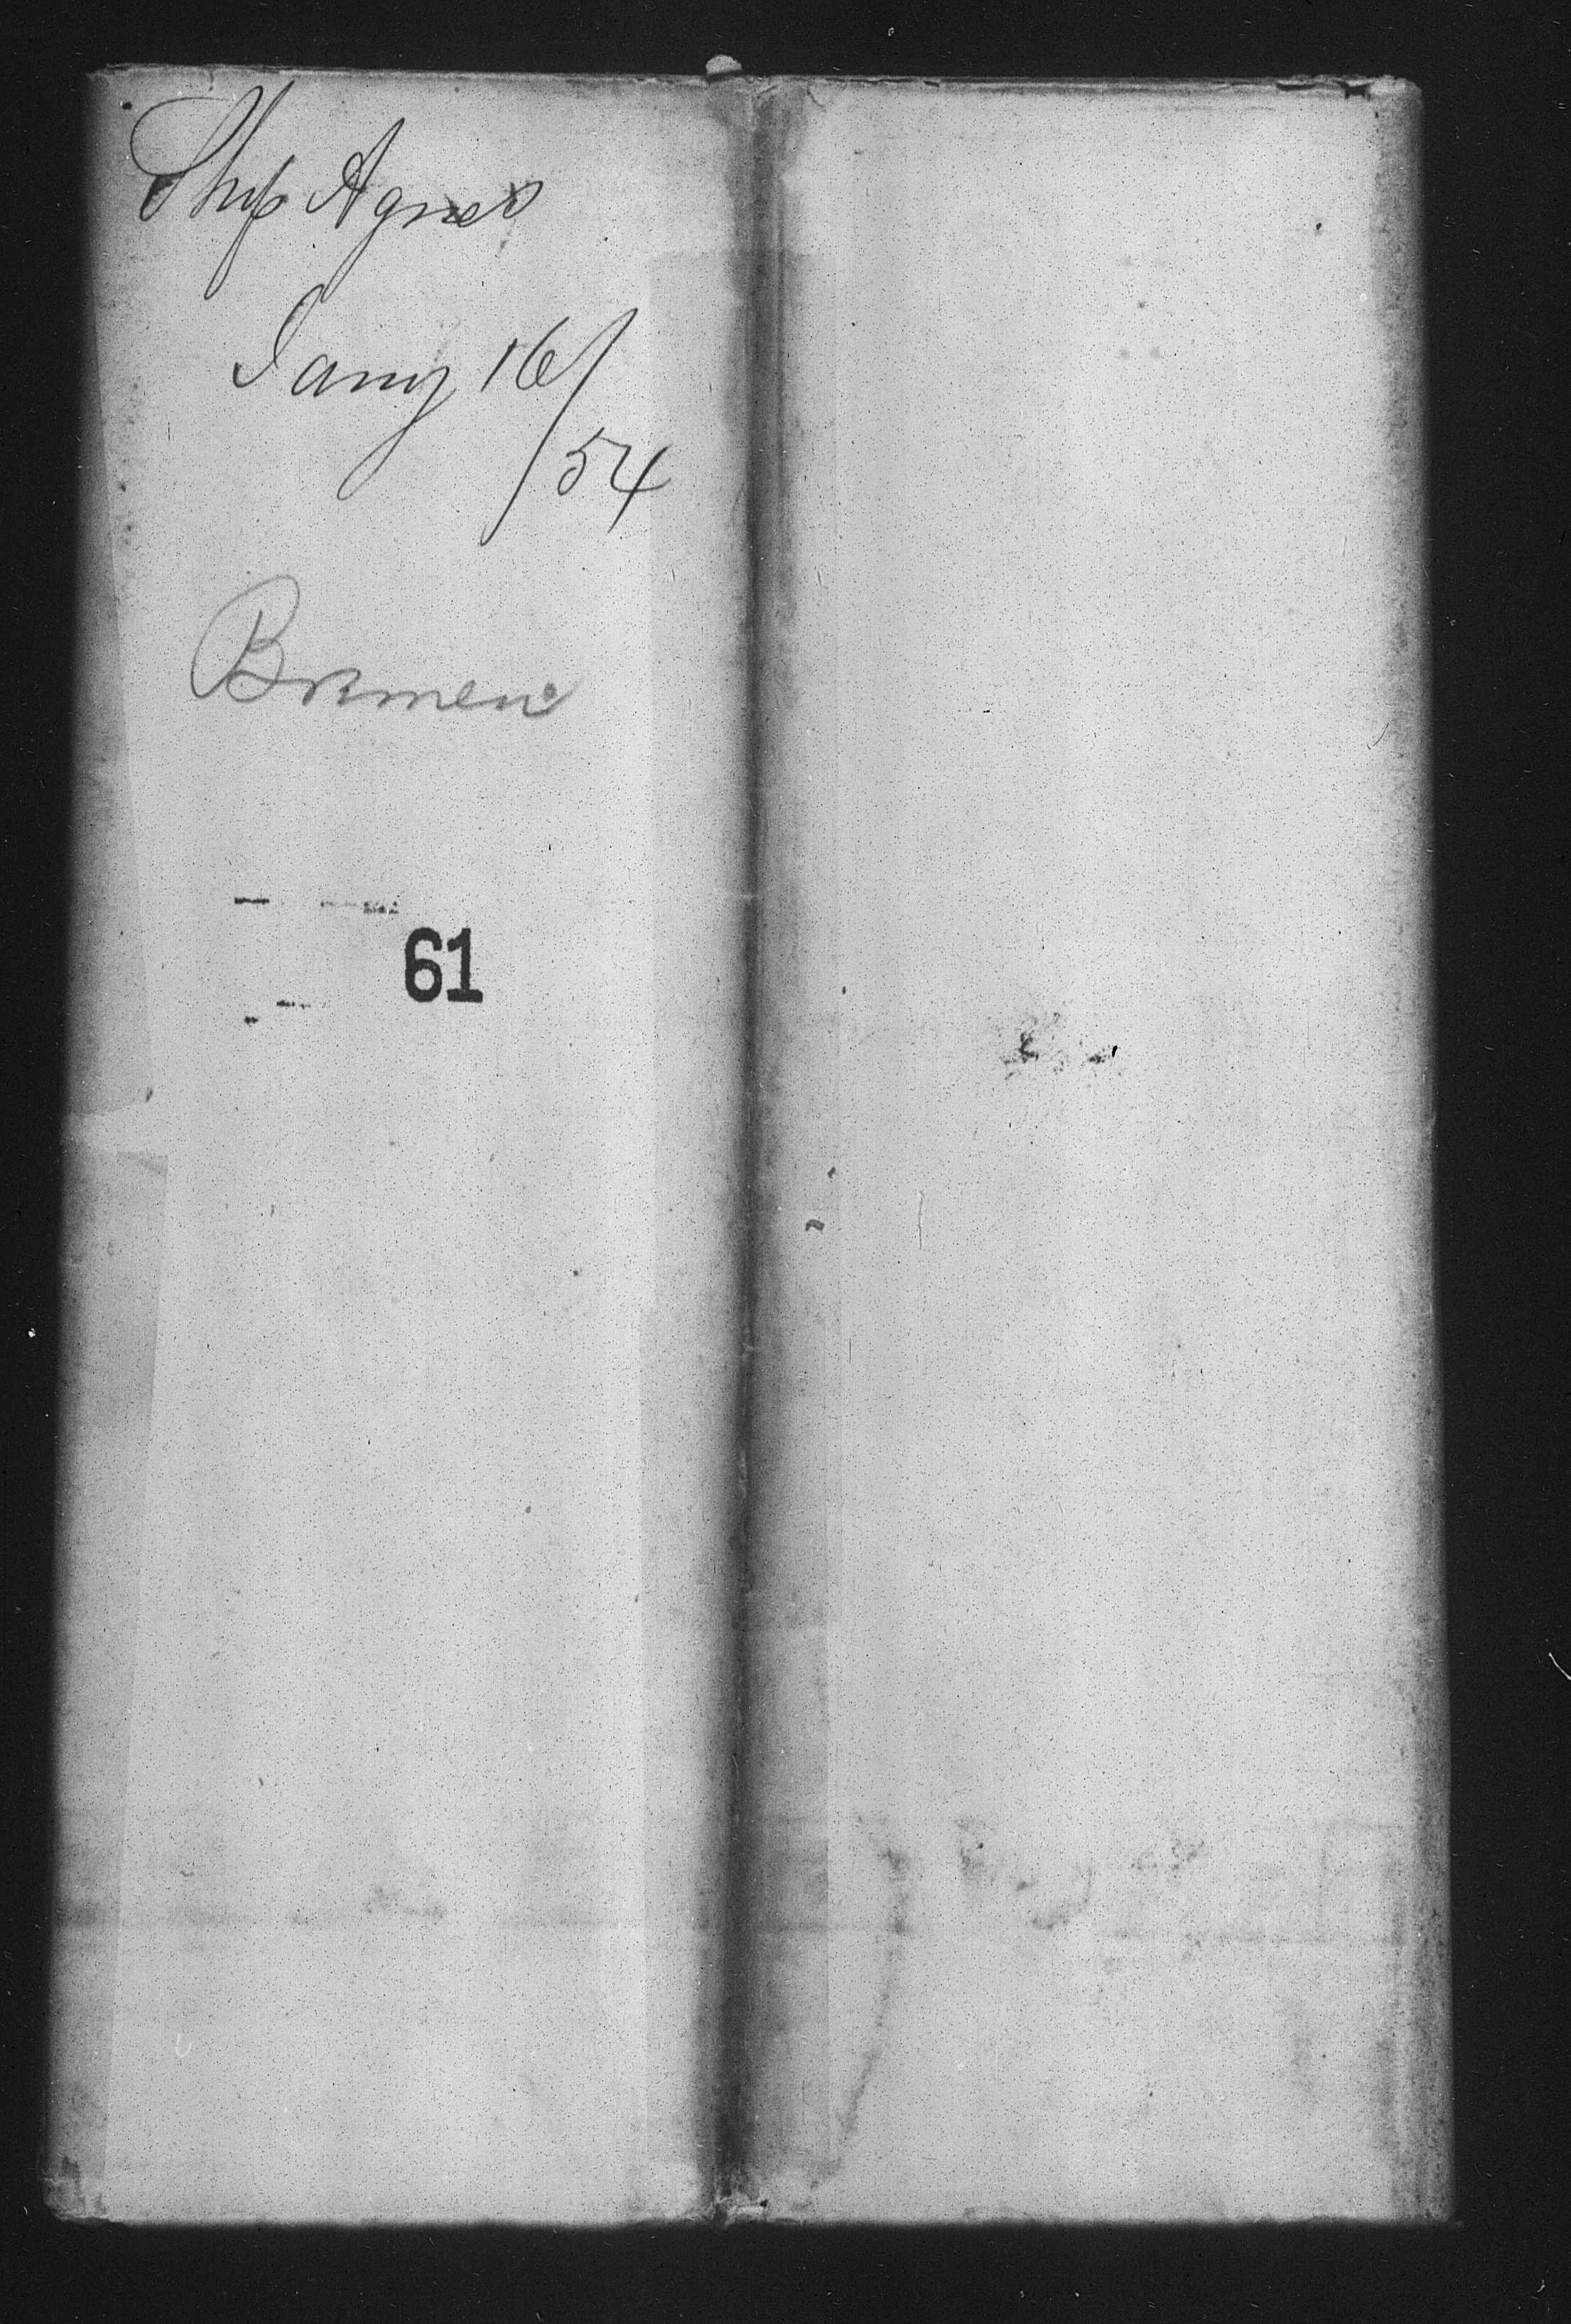 Ship Agnes
Jany 16/
/54
Bremen
61